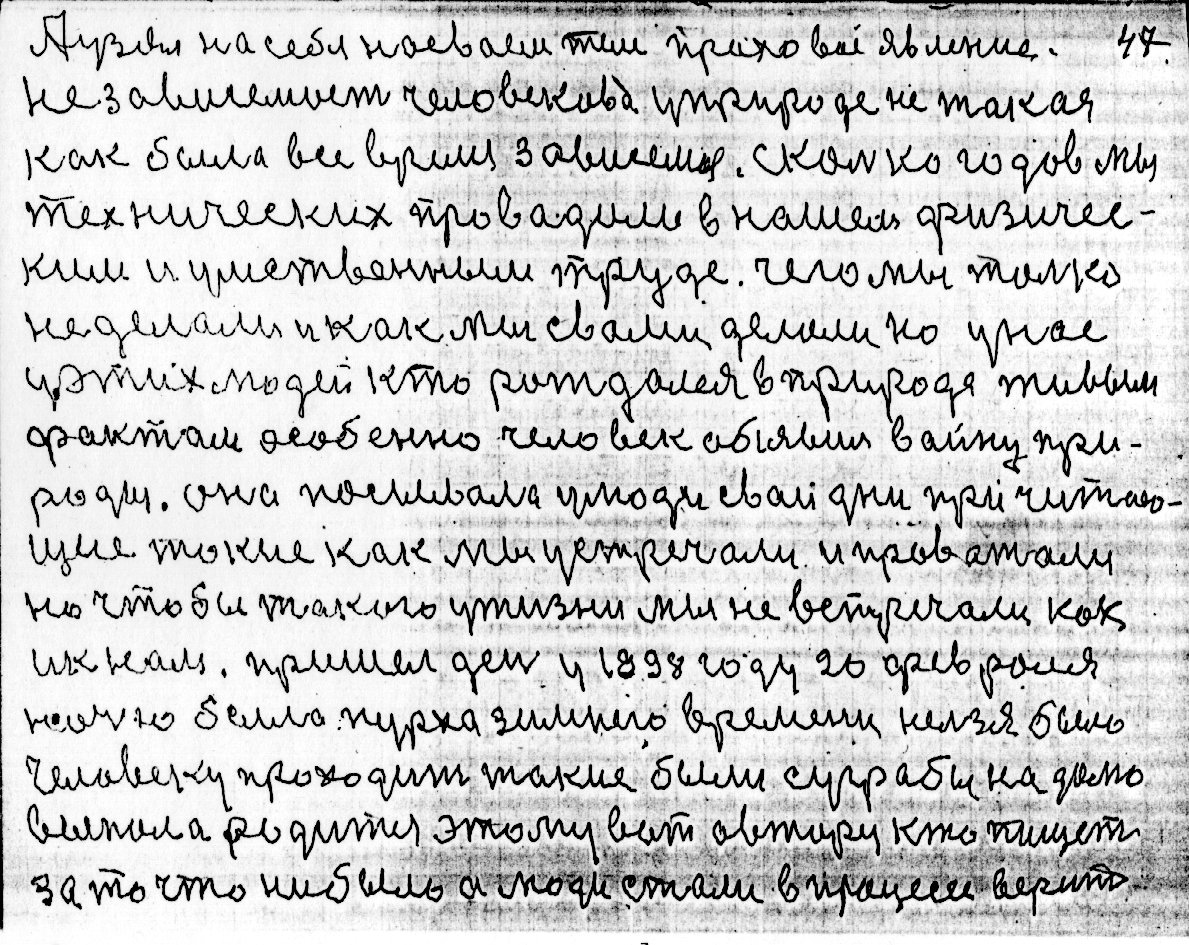 А узял на себя наеваем тем приховой явление. 47.
не зависемост человекова у природе не такая
как была все время зависемая. сколко годов мы
технических провадили в нашем физичес-
ким и умственным труде. чего мы толко
не делали и как мы свами делали но унас
уэтих людей кто рождался в природе живым
фактам особенно человек обявил вайну при-
роды. она посилвала улюди сваи дни причитаю-
щие такие как мы устречали и проважали
но чтобы такого ужизни мы не встречали как
ик нам. пришел ден у 1898 году 20 февроля
ночю была пурха зимнего времени нелзя было
человеку проходит такие были суграбы на долю
выпола родится этому вот автору кто пищет
за то что ни было а люди стали в процесси верит